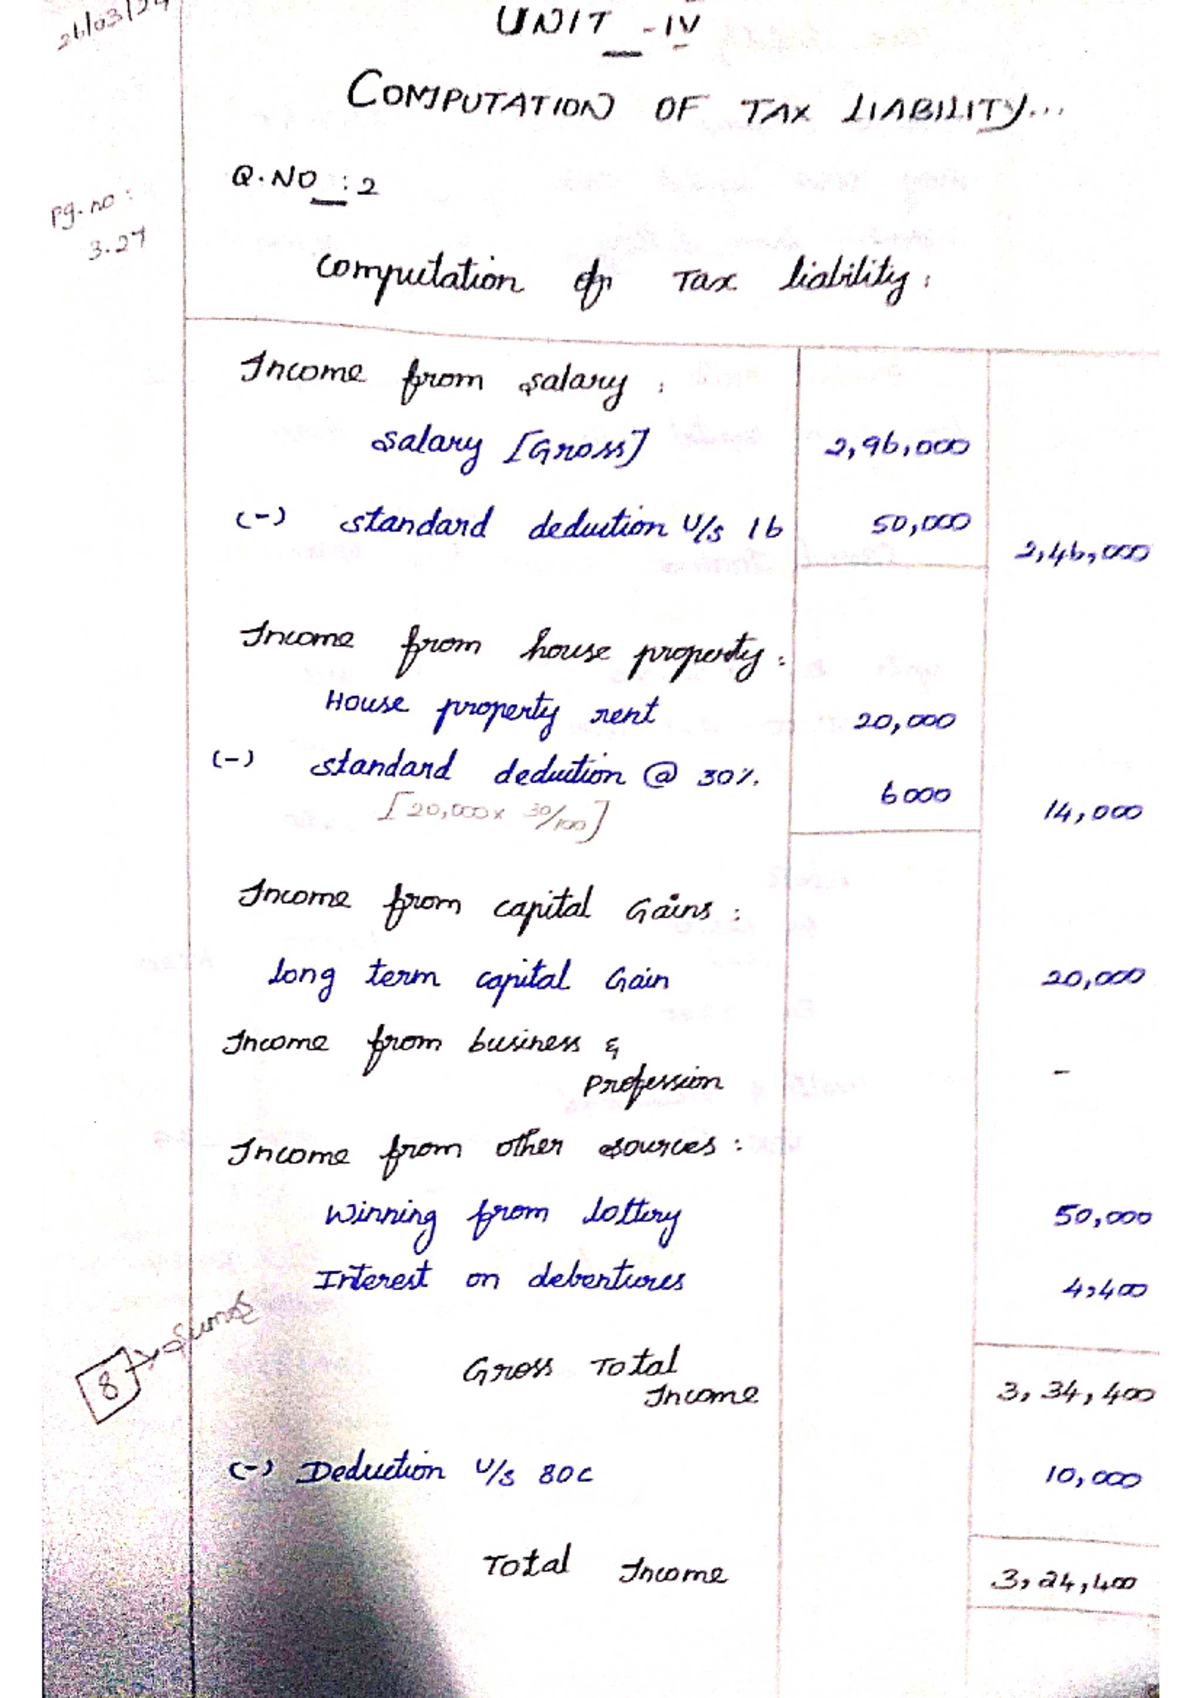 26/03/24
UNIT - IV
COMPUTATION OF TAX LIABILITY...
Q.NO : 2
pg.no :
3.27
Computation of Tax liability :
Income from salary :
Salary [Gross] 2,96,000
(-) standard deduction U/s 16 50,000 2,46,000
Income from house property :
House property rent 20,000
(-) standard deduction @ 30% 6000 14,000
[20,000 x 30/100]
Income from capital Gains :
Long term capital Gain 20,000
Income from business &
Profession -
Income from other sources :
Winning from lottery 50,000
Interest on debentures 4,400
8 → sums
Gross Total
Income 3,34,400
(-) Deduction U/s 80C 10,000
Total Income 3,24,400